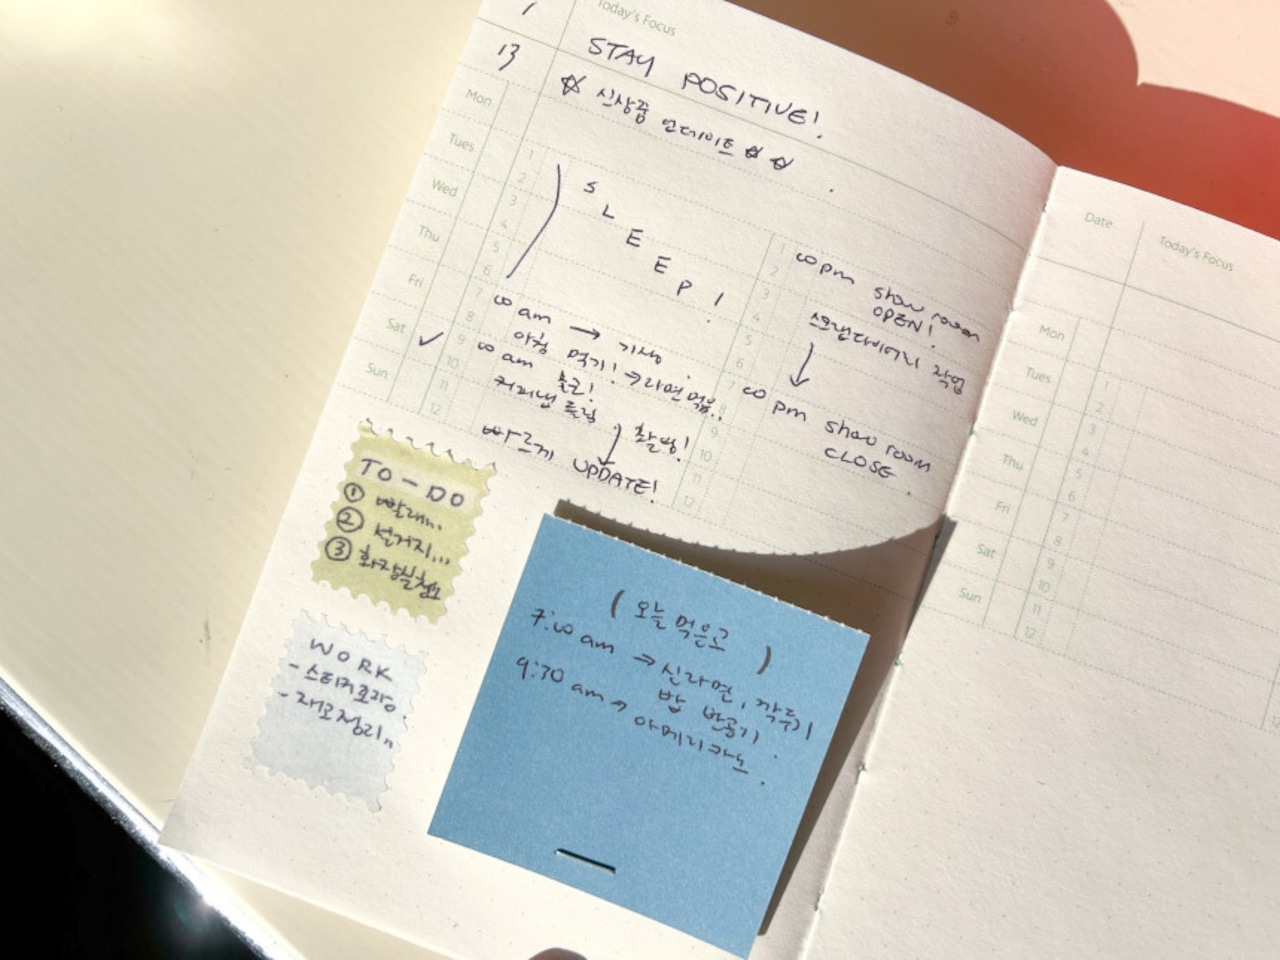 Today's Focus
13
STAY POSITIVE!
☆ 신상품 업데이트 ☆ ☆
Mon
Tues
Wed
Thu
Fri
Sat ✓
Sun
1
2
3
4
5
6
7
8
9
10
11
12
SLEEP!
00 am → 기상.
아침 먹기! → 라면 먹음..
00 am 출근!
커피숍 들림
활명!
빠르게 UPDATE!
1
2
3
4
5
6
7
8
9
10
11
12
00 pm show room
OPEN!
스프링다이어리 작업
00 pm show room
CLOSE.
TO-DO
① 빨래...
② 설거지...
③ 화장실청소
WORK
- 스티커포장.
- 재료정리..
( 오늘 먹은고 )
7:00 am → 신라면, 깍두기
밥 반공기.
9:30 am → 아메리카노.
Date
Today's Focus
Mon
Tues
Wed
Thu
Fri
Sat
Sun
1
2
3
4
5
6
7
8
9
10
11
12